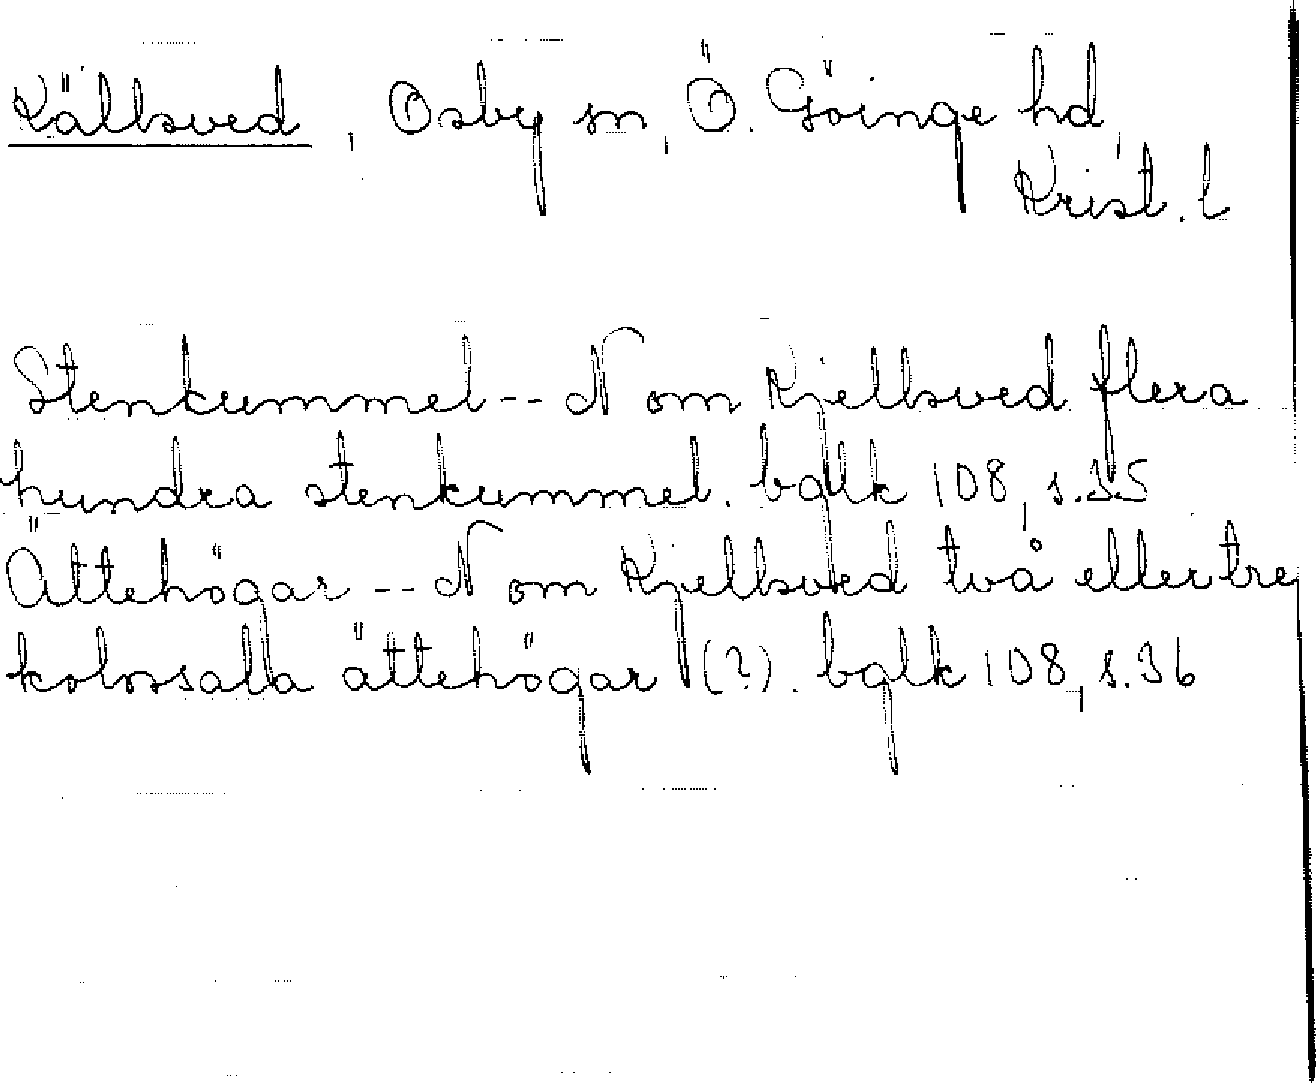 Källsved, Osby sn, Ö. Göinge hd,
Krist. l
Stenkummel -- N om Kjellsved flera
hundra stenkummel. bglk 108, s. 35
Ättehögar -- N om Kjellsved två eller tre
kolossala ättehögar (?). bglk 108, s. 36